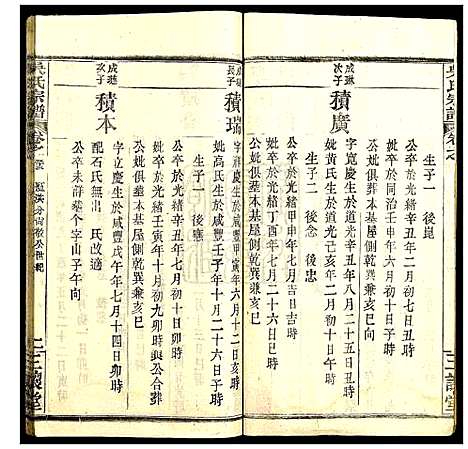 吳氏宗譜
生子一 後崑
公卒於光緒辛丑年二月初七日丑時
妣卒於同治壬申年六月初十日子時
公妣俱葬本基屋側乾巽兼亥巳向
成琳次子 積廣
字寬慶生於道光辛丑年八月二十五日丑時
公卒於光緒甲申年七月吉日吉時
妣黃氏生於道光己亥年二月初十日午時
妣卒於光緒丁酉年七月二十六日亥時
公妣俱葬本基屋側乾巽兼亥巳
生子二 後念 後忠
三讓堂
吳氏宗譜
成璂長子 積瑞
字祥慶生於咸豐 寅年六月十二日亥時
公卒於光緒辛丑年七月初十日卯時
妣高氏生於咸豐壬子年十月二十六日子時
妣卒於光緒壬寅年十月初九卯時與公合葬
公妣俱葬本基屋側乾巽兼亥巳
生子一 後應
成璂次子 積本
字立慶生於咸豐戊午年七月十四日卯時
配石氏無出 氏改適
公卒未詳葬个字山子午向
三讓堂